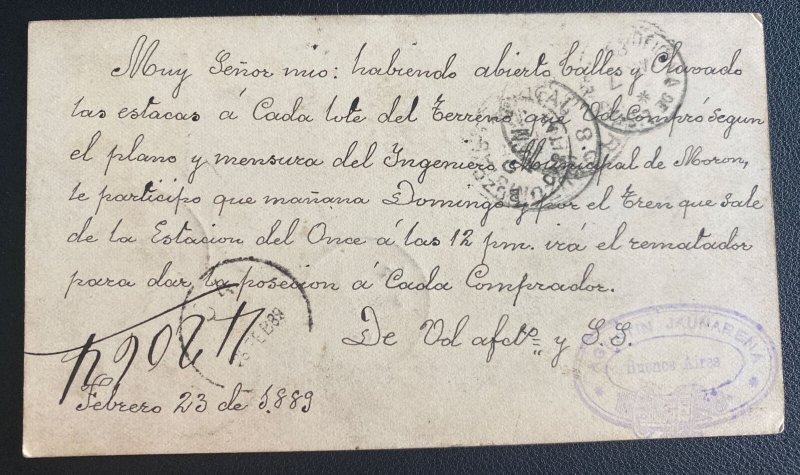 Muy Señor mio: habiendo abierto Calles y Clavado
las estacas á Cada lote del Terreno que Vd Compró segun
el plano y mensura del Ingeniero Municipal de Moron,
le participo que mañana Domingo y por el Tren que sale
de la Estacion del Once á las 12 pm. irá el rematador
para dar la posecion á Cada Comprador.
De Vd afctº y S. S.
Febrero 23 de 1889
JAUNARENA
Buenos Aires